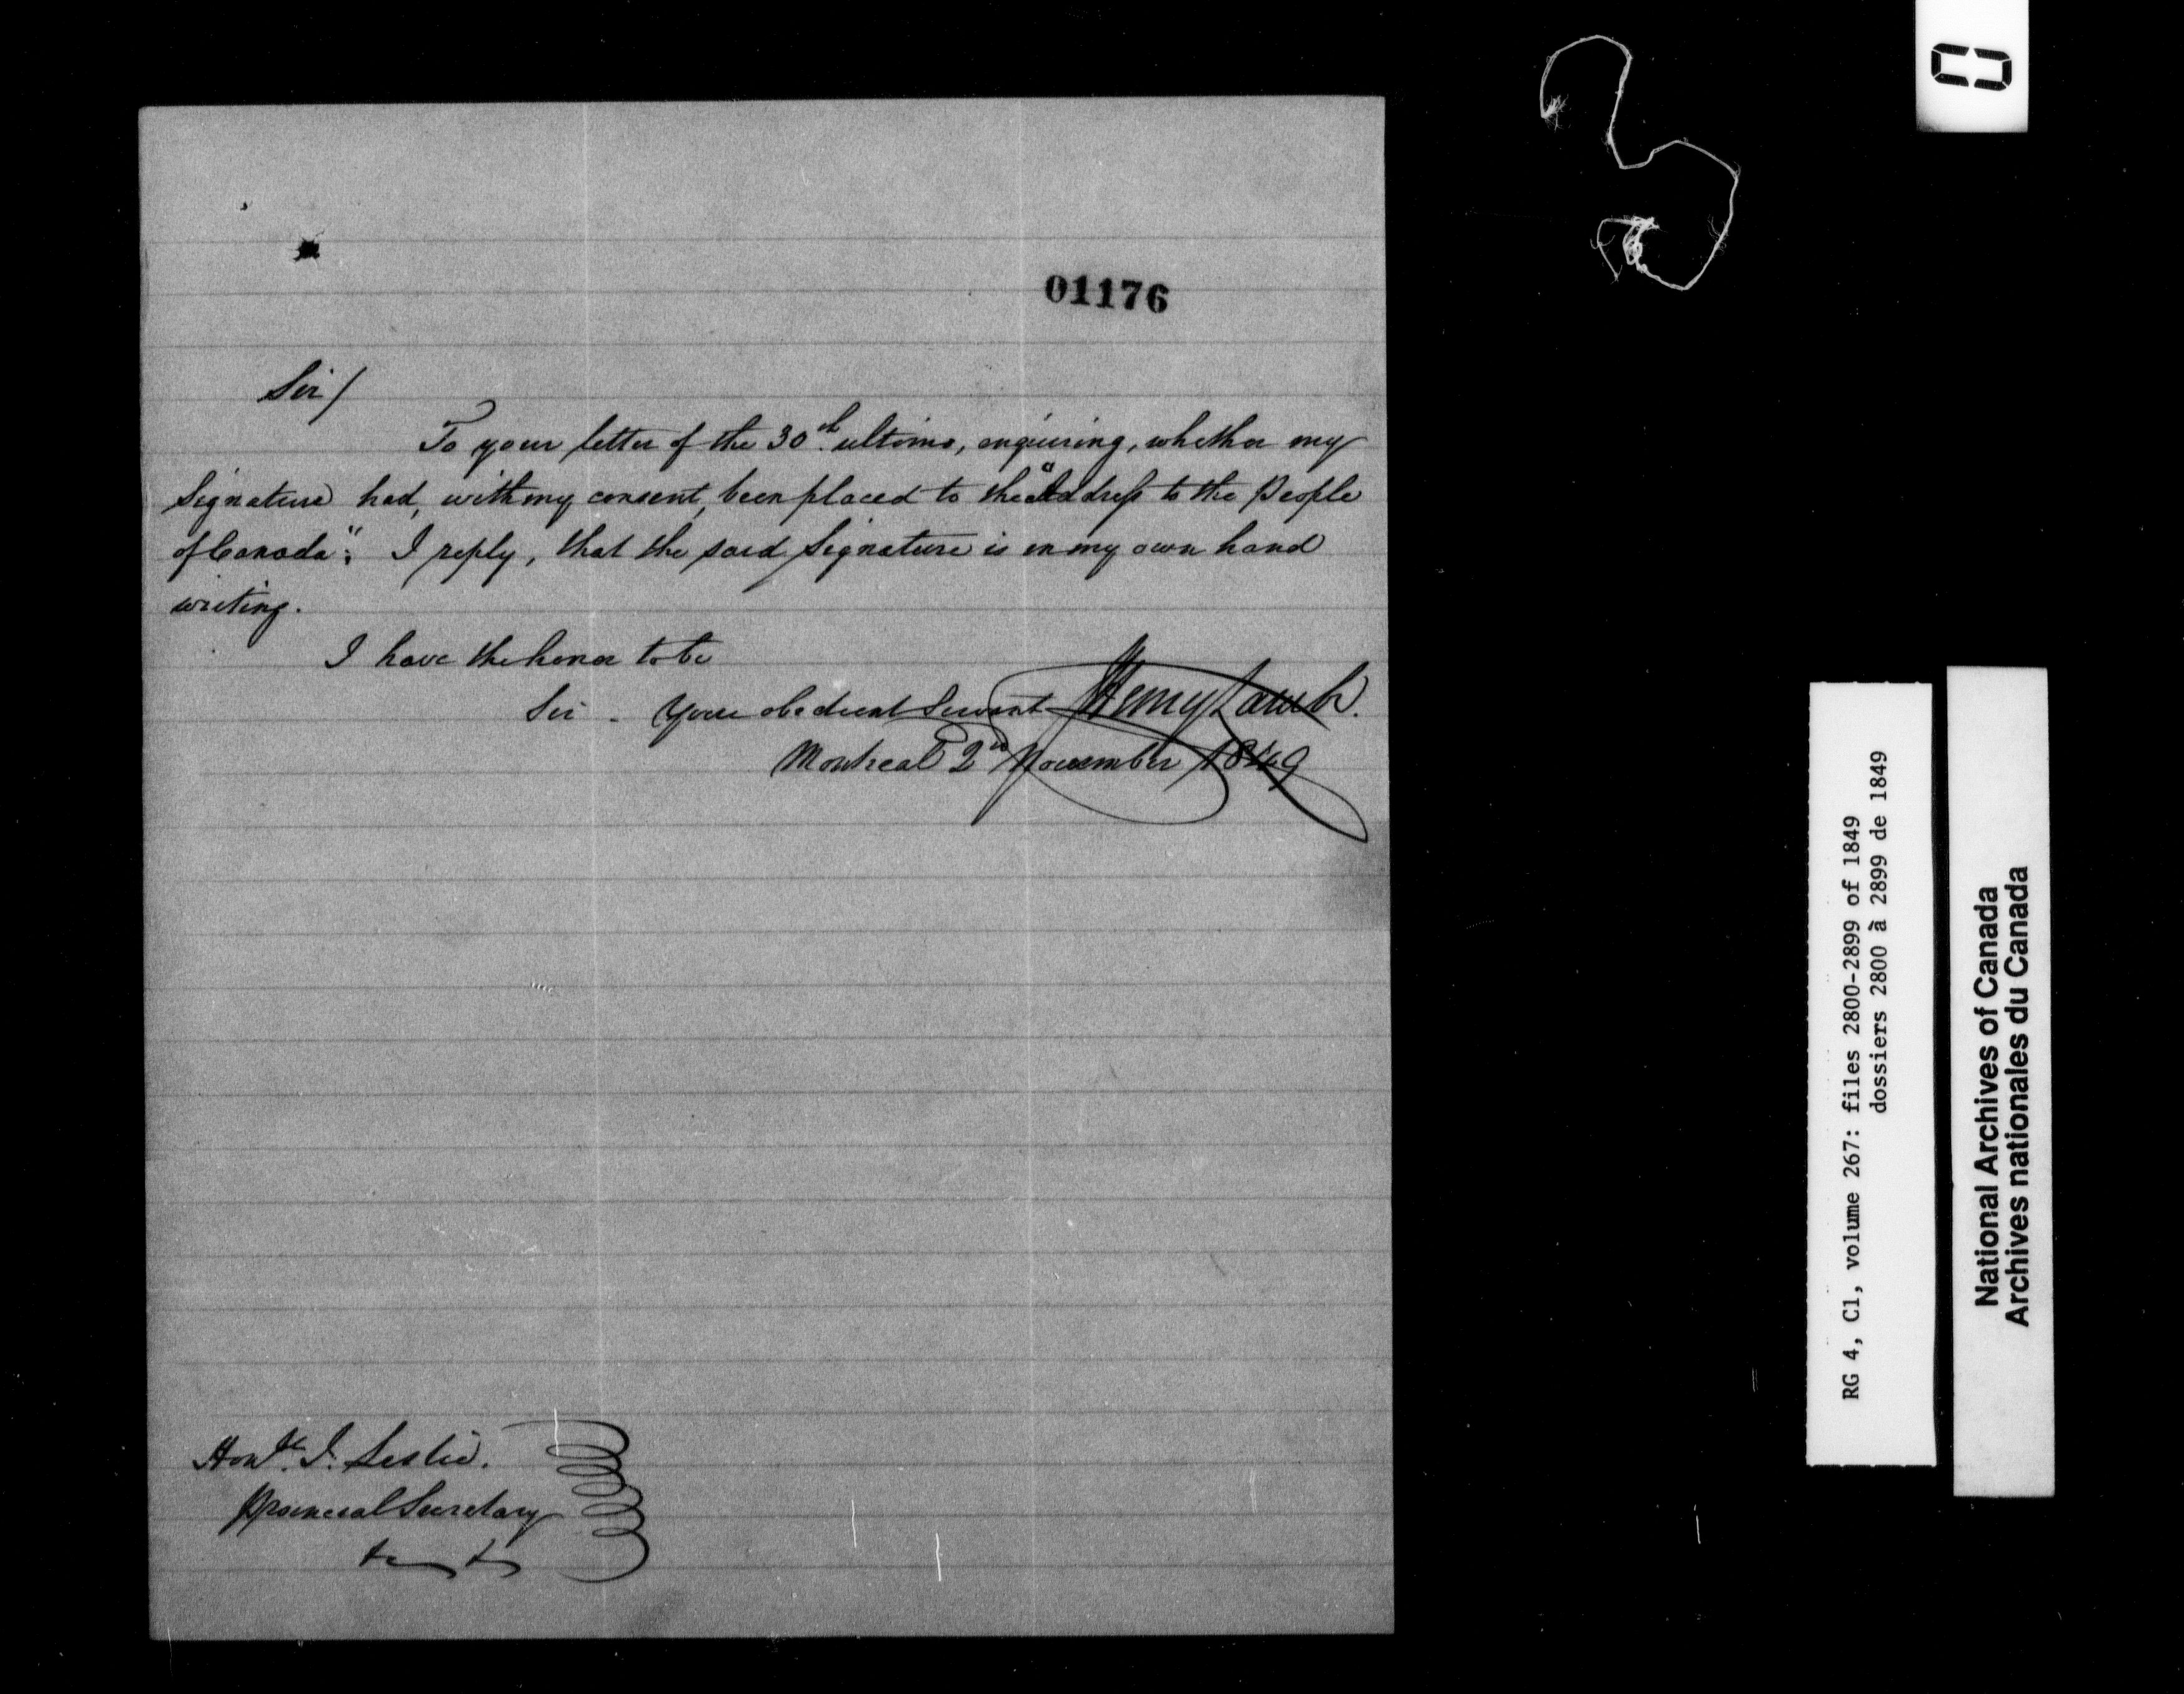 01176
Sir/
To your letter of the 30th ultimo, enquiring, whether my
Signature had, with my consent, been placed to the "Address to the People
of Canada"; I reply, that the said Signature is in my own hand
writing.
I have the honor to be
Sir - Your obedient Servant Henry
Montreal 2nd November 1849
Honble J. Leslie.
Provincial Secretary
RG 4, C1, volume 267: files 2800-2899 of 1849
dossiers 2800 à 2899 de 1849
National Archives of Canada
Archives nationales du Canada